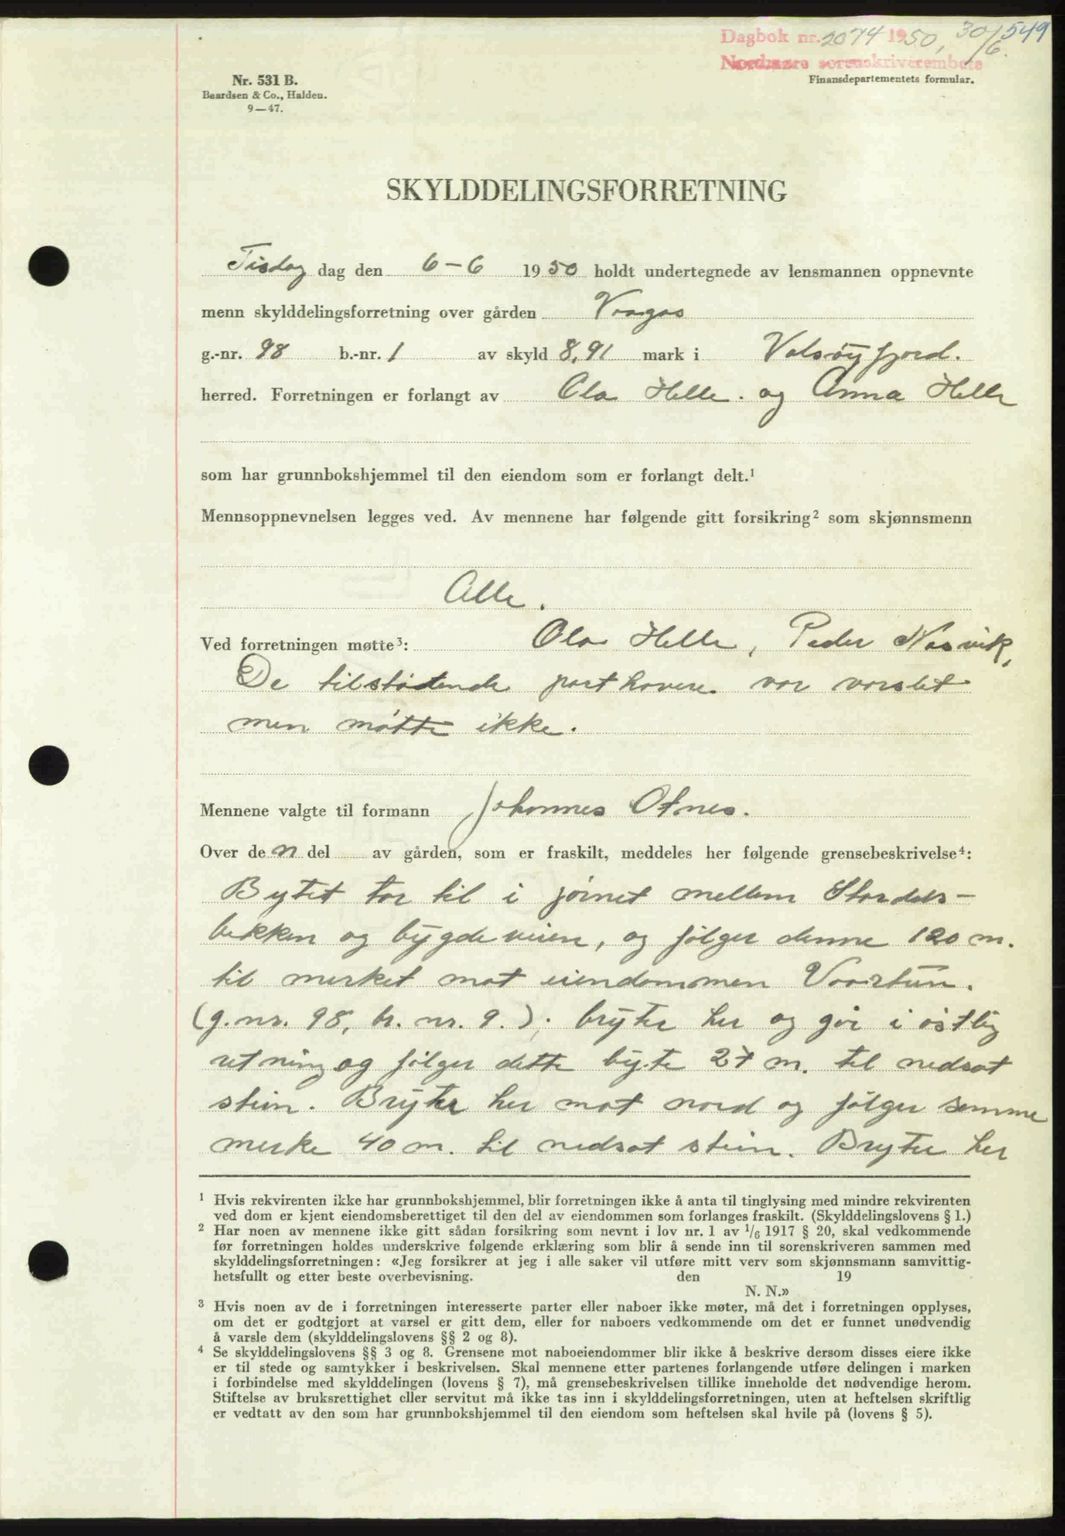 Dagbok nr. 2074 1950, 30/6 549
Nordmøre sorenskriverembete
Nr. 531 B.
Beardsen & Co., Halden.
9—47.
Finansdepartementets formular.
SKYLDDELINGSFORRETNING
Tisdag dag den 6-6 1950 holdt undertegnede av lensmannen oppnevnte
menn skylddelingsforretning over gården
g.-nr. 98 b.-nr. 1 av skyld 8,91 mark i Valsøyfjord.
herred. Forretningen er forlangt av Ola Helle. og Anna Helle
som har grunnbokshjemmel til den eiendom som er forlangt delt.¹
Mennsoppnevnelsen legges ved. Av mennene har følgende gitt forsikring² som skjønnsmenn
Alle.
Ved forretningen møtte³: Ola Helle, Peder Nasvik,
De tilstøtende part havere. var varslet
men møtte ikke.
Mennene valgte til formann Johannes Otnes.
Over den del av gården, som er fraskilt, meddeles her følgende grensebeskrivelse⁴:
Bytet tar til i mellem
bekken og bygdeveien, og følger denne 120 m.
til merket mot eiendommen Vaartun.
(g.nr. 98, br. nr. 9.); bryter her og går i østlig
retning og følger dette byte 27 m. til nedsat
stein. Bryter her mot nord og følger samme
merke 40 m. til nedsat stein. Bryter her
¹ Hvis rekvirenten ikke har grunnbokshjemmel, blir forretningen ikke å anta til tinglysing med mindre rekvirenten
ved dom er kjent eiendomsberettiget til den del av eiendommen som forlanges fraskilt. (Skylddelingslovens § 1.)
² Har noen av mennene ikke gitt sådan forsikring som nevnt i lov nr. 1 av 1/6 1917 § 20, skal vedkommende
før forretningen holdes underskrive følgende erklæring som blir å sende inn til sorenskriveren sammen med
skylddelingsforretningen: «Jeg forsikrer at jeg i alle saker vil utføre mitt verv som skjønnsmann samvittig-
hetsfullt og etter beste overbevisning. den 19
N. N.»
³ Hvis noen av de i forretningen interesserte parter eller naboer ikke møter, må det i forretningen opplyses,
om det er godtgjort at varsel er gitt dem, eller for naboers vedkommende om det er funnet unødvendig
å varsle dem (skylddelingslovens §§ 2 og 8).
⁴ Se skylddelingslovens §§ 3 og 8. Grensene mot naboeiendommer blir ikke å beskrive dersom disses eiere ikke
er til stede og samtykker i beskrivelsen. Skal mennene etter partenes forlangende utføre delingen i marken
i forbindelse med skylddelingen (lovens § 7), må grensebeskrivelsen tillike inneholde det nødvendige herom.
Stiftelse av bruksrettighet eller servitut må ikke tas inn i skylddelingsforretningen, uten at heftelsen skriftlig
er vedtatt av den som har grunnbokshjemmel til den eiendom som heftelsen skal hvile på (lovens § 5).